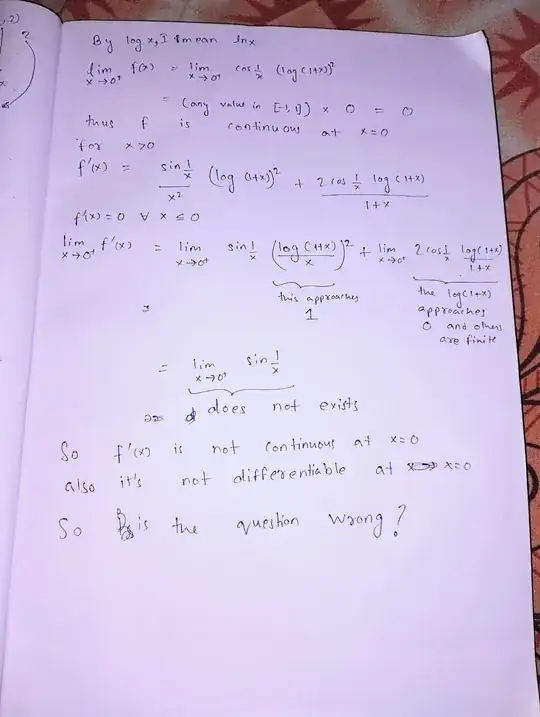 . 2)
2
By log x, I mean ln x
lim x→0⁺ f(x) = lim x→0⁺ cos 1/x (log(1+x))²
= (any value in [-1, 1]) × 0 = 0
thus f is continuous at x=0
for x >0
f'(x) = sin 1/x / x² (log (1+x))² + 2 cos 1/x log (1+x) / 1+x
f'(x) = 0 ∀ x ≤ 0
lim x→0⁺ f'(x) = lim x→0⁺ sin 1/x (log(1+x)/x)² + lim x→0⁺ 2 cos 1/x log(1+x)/1+x
this approaches
1
the log(1+x)
approaches
0 and others
are finite
=
= lim x→0⁺ sin 1/x
does not exists
So f'(x) is not continuous at x=0
also it's not differentiable at x=0
So is the question wrong?